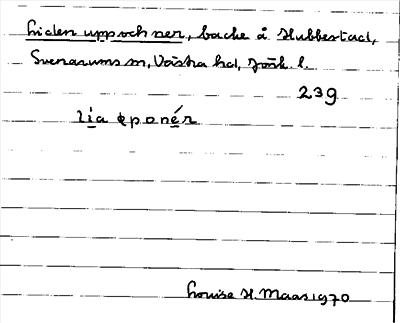 Liden upp och ner, backe å Stubbestad,
Svenarums sn, Västra hd, Jönk. l.
239
lia øponér
Louise H. Maas 1970